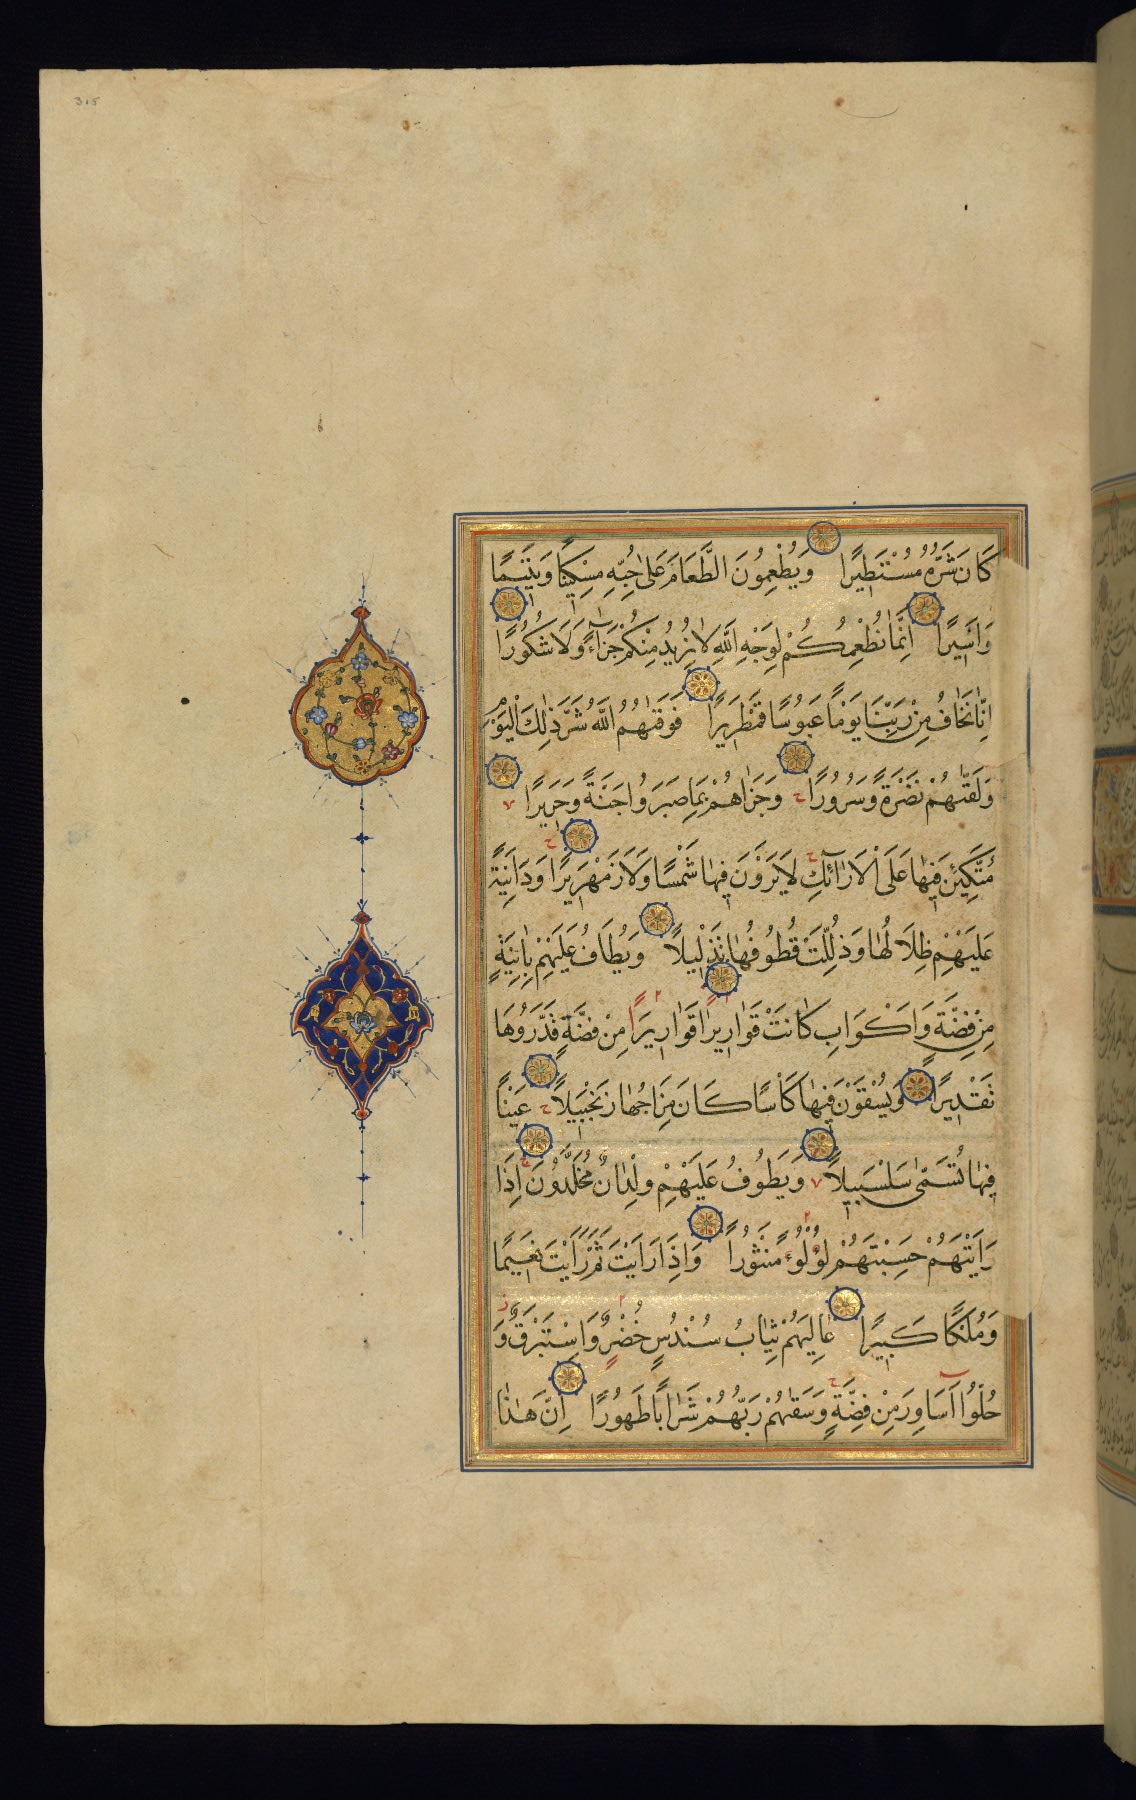 315
كَانَ شَرُّهُ مُسْتَطِيرًا وَيُطْعِمُونَ الطَّعَامَ عَلٰى حُبِّهِ مِسْكِينًا وَيَتِيمًا
وَاَسِيرًا اِنَّمَا نُطْعِمُكُمْ لِوَجْهِ اللّٰهِ لَا نُرِيدُ مِنْكُمْ جَزَاءً وَلَا شُكُورًا
اِنَّا نَخَافُ مِنْ رَبِّنَا يَوْمًا عَبُوسًا قَمْطَرِيرًا فَوَقٰىهُمُ اللّٰهُ شَرَّ ذٰلِكَ الْيَوْمِ
وَلَقّٰىهُمْ نَضْرَةً وَسُرُورًا ج وَجَزٰىهُمْ بِمَا صَبَرُوا جَنَّةً وَحَرِيرًا لا
مُتَّكِئِنَ فِيهَا عَلَى الْاَرَائِكِ ج لَا يَرَوْنَ فِيهَا شَمْسًا وَلَا زَمْهَرِيرًا ج وَدَانِيَةً
عَلَيْهِمْ ظِلَالُهَا وَذُلِّلَتْ قُطُوفُهَا تَذْلِيلًا وَيُطَافُ عَلَيْهِمْ بِاٰنِيَةٍ
مِنْ فِضَّةٍ وَاَكْوَابٍ كَانَتْ قَوَارِيرَا قَوَارِيرَا مِنْ فِضَّةٍ قَدَّرُوهَا
تَقْدِيرًا وَيُسْقَوْنَ فِيهَا كَأْسًا كَانَ مِزَاجُهَا زَنْجَبِيلًا ج عَيْنًا
فِيهَا تُسَمّٰى سَلْسَبِيلًا لا وَيَطُوفُ عَلَيْهِمْ وِلْدَانٌ مُخَلَّدُونَ ج اِذَا
رَاَيْتَهُمْ حَسِبْتَهُمْ لُؤْلُؤًا مَنْثُورًا وَاِذَا رَاَيْتَ ثَمَّ رَاَيْتَ نَعِيمًا
وَمُلْكًا كَبِيرًا عَالِيَهُمْ ثِيَابُ سُنْدُسٍ خُضْرٌ وَاِسْتَبْرَقٌ ز وَ
حُلُّوا اَسَاوِرَ مِنْ فِضَّةٍ ج وَسَقٰىهُمْ رَبُّهُمْ شَرَابًا طَهُورًا اِنَّ هٰذَا